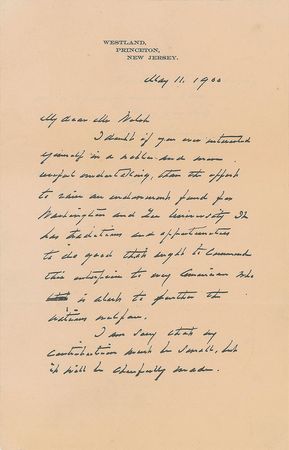 WESTLAND,
PRINCETON,
NEW JERSEY.
May 11, 1900
My dear Mr Welsh
I doubt if you ever interested
yourself in a nobler and more
useful undertaking, than the effort
to raise an endowment fund for
Washington and Lee University It
has traditions and opportunities
to do good that ought to commend
this enterprise to any American who
is alert to further the
nations welfare.
I am sorry that my
contribution must be small, but
it will be cheerfully made.